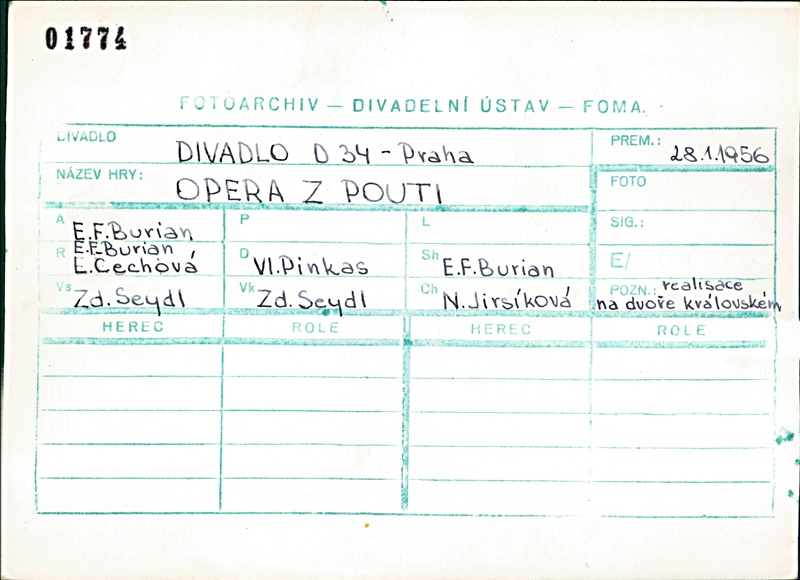 01774
FOTOARCHIV — DIVADELNÍ ÚSTAV — FOMA.
DIVADLO DIVADLO D 34 - Praha PREM.: 28.1.1956
NÁZEV HRY: OPERA Z POUTI FOTO
A E.F.Burian P L SIG.:
R E.F.Burian
L.Cechová D Vl.Pinkas Sh E.F.Burian E/
Vs Zd.Seydl Vk Zd.Seydl Ch N.Jirsíková POZN.: realisace
na dvoře královském
HEREC ROLE HEREC ROLE